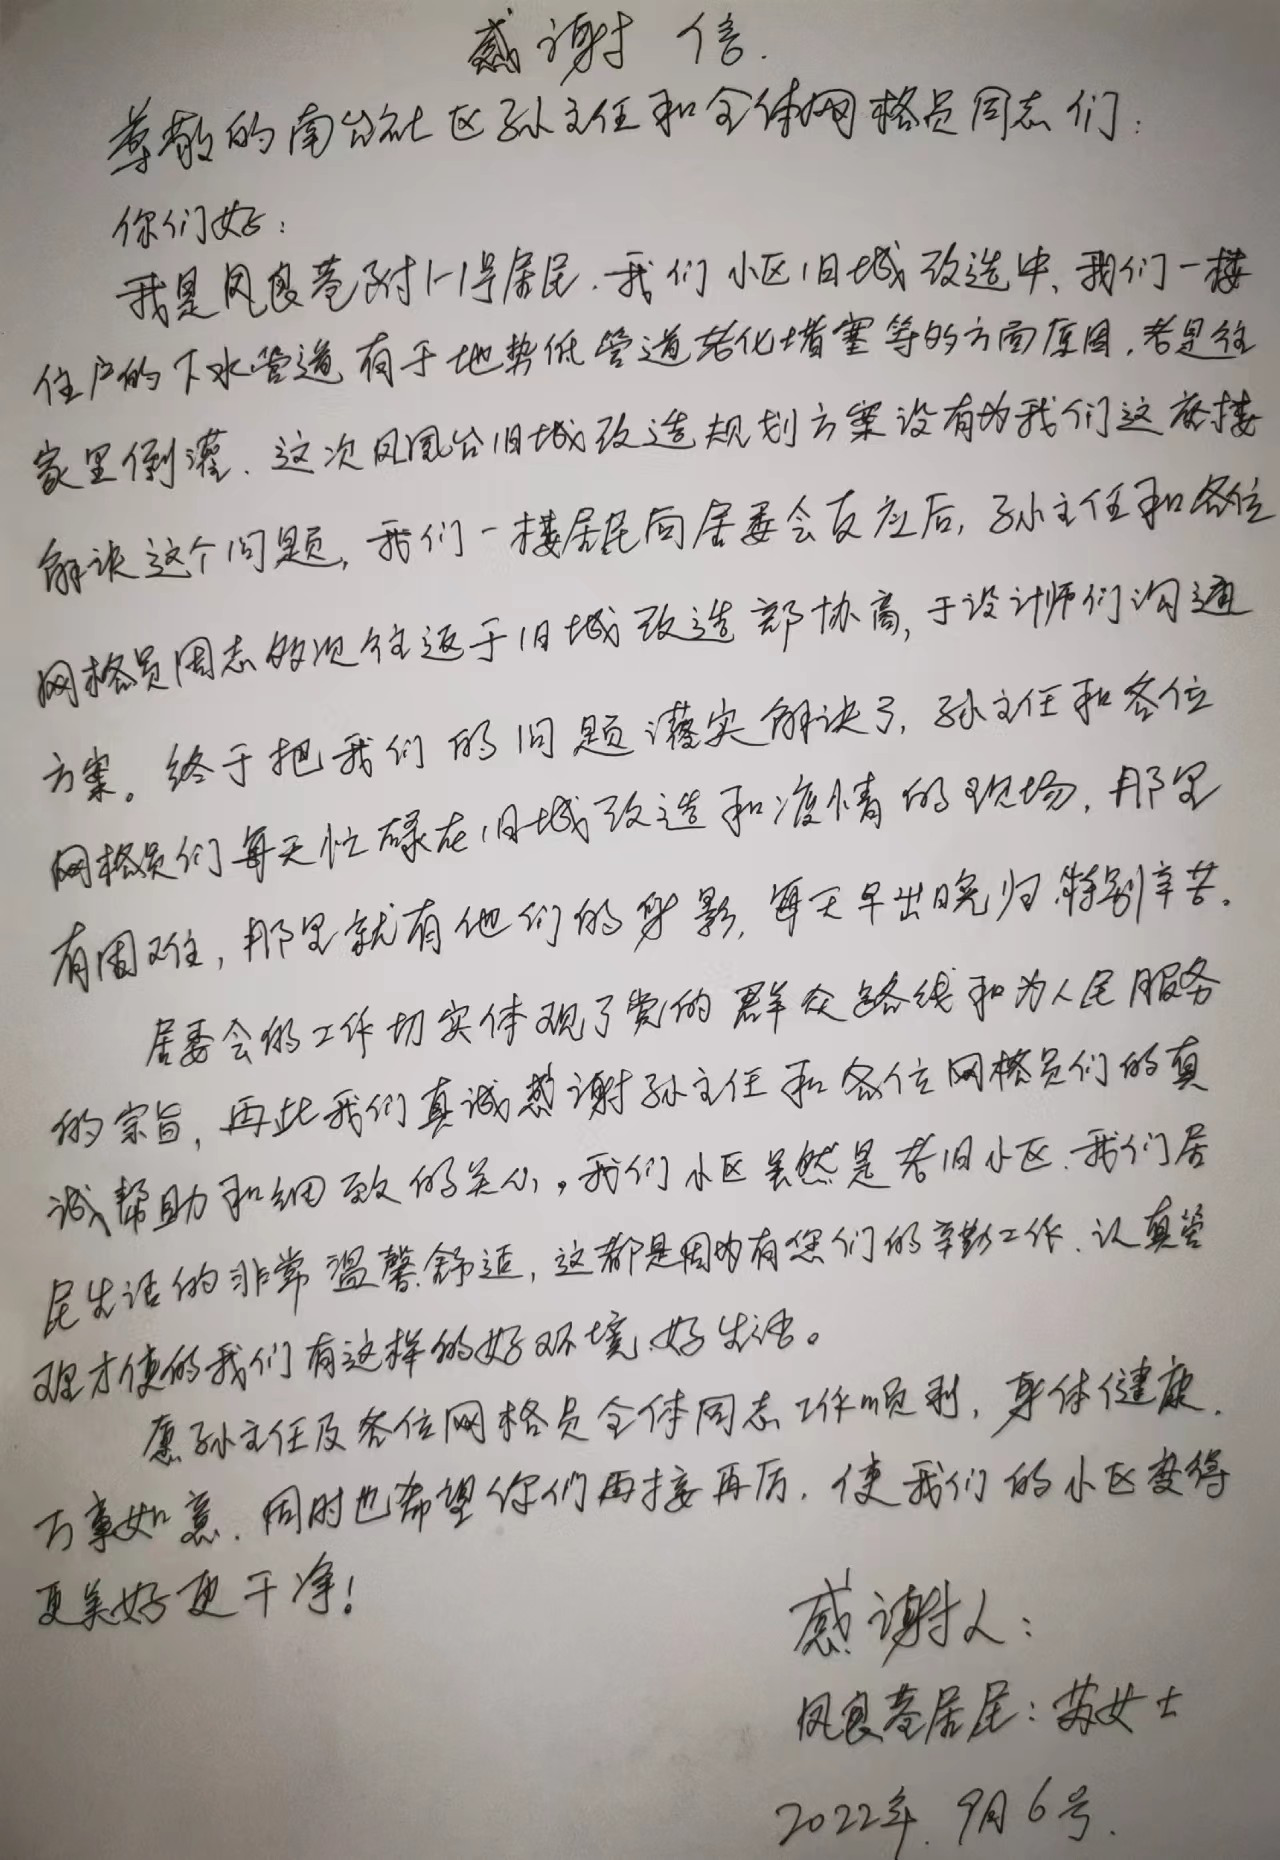 感谢信.
尊敬的南台社区孙主任和全体网格员同志们:
你们好:
我是凤良巷附1-1号居民.我们小区旧城改造中、我们一楼
住户的下水管道有于地势低管道老化堵塞等的方面原因,老是往
家里倒灌.这次凤凰台旧城改造规划方案没有为我们这座楼
解决这个问题,我们一楼居民向居委会反应后,孙主任和各位
网格员同志多次往返于旧城改造部协商,于设计师们沟通
方案。终于把我们的问题落实解决了,孙主任和各位
网格员们每天忙碌在旧城改造和疫情的现场,那里
有困难,那里就有他们的身影,每天早出晚归.特别辛苦。
居委会的工作切实体现了党的群众路线和为人民服务
的宗旨,再此我们真诚感谢孙主任和各位网格员们的真
诚帮助和细致的关心。我们小区虽然是老旧小区.我们居
民生活的非常温馨.舒适,这都是因为有您们的辛勤工作、认真管
理才使的我们有这样的好环境、好生活。
愿孙主任及各位网格员全体同志工作顺利,身体健康.
万事如意.同时也希望你们再接再厉.使我们的小区变得
更美好更干净!
感谢人:
凤良巷居民:苏女士
2022年.9月6号.